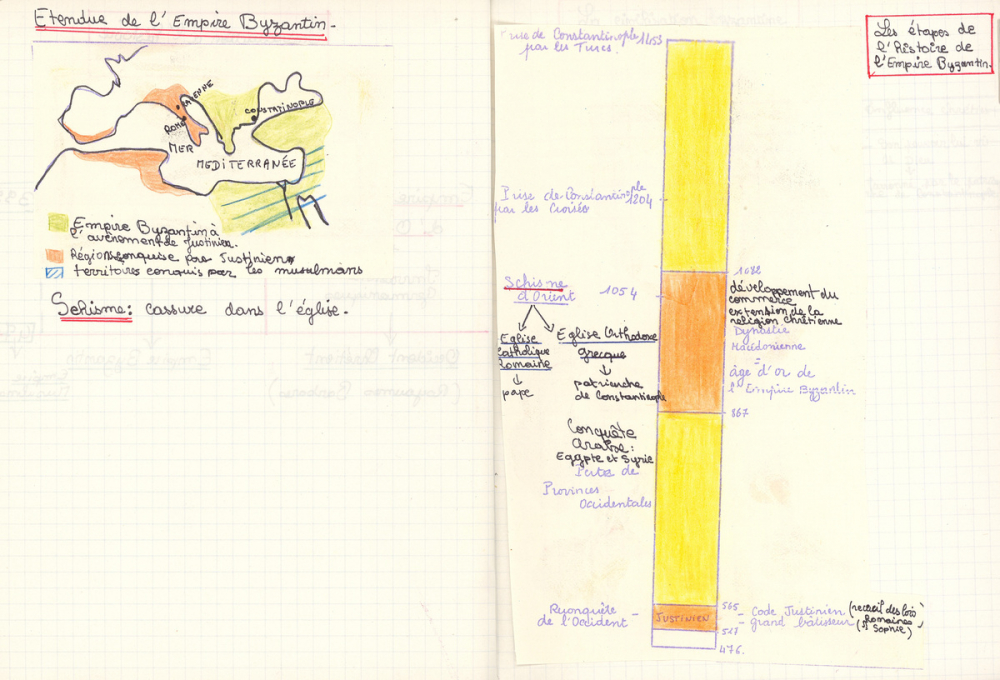 Etendue de l'Empire Byzantin.
RAVENNE
ROME
CONSTATINOPLE
MER
MEDITERRANÉE
Empire Byzantin à
l'avènement de Justinien.
Régions conquise par Justinien
territoires conquis par les musulmans
Schisme: cassure dans l'église.
Les étapes de
l'Histoire de
l'Empire Byzantin.
Prise de Constantinople 1453
par les Turcs.
Prise de Constantinople
1204
par les Croisés
1082
développement du
commerce
extension de la
religion chrétienne
Schisme
d'Orient
1054
Dynastie
Macédonienne
=
âge d'or de
l'Empire Byzantin
Eglise
Catholique
Romaine
↓
pape
Eglise Orthodoxe
grecque
↓
patriarche
de Constantinople
867
Conquête
arabe:
Egypte et Syrie
Perte de
Provinces
Occidentales
565
Reconquête –
de l'Occident
JUSTINIEN
– Code Justinien (recueil des lois
Romaines,
– grand bâtisseur (St Sophie)
527
476.